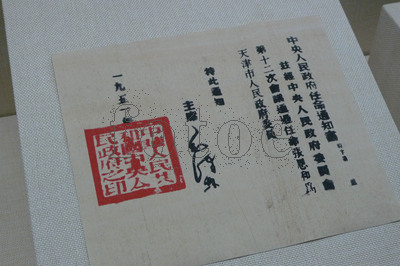 中央人民政府任命通知書
茲經中央人民政府委員會
第十二次會議通過任命張思印爲
天津市人民政府委員
特此通知
主席 毛澤東
一九五
中華人民共
和國中央人
民政府之印